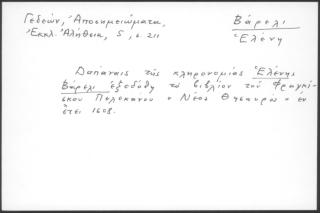 Γεδεών, Ἀποσημειώματα,
Ἐκκλ. Ἀλήθεια, 5, σ. 211
Βάρελι
Ἑλένη
Δαπάναις τῆς κληρονομίας Ἑλένης
Βάρελι ἐξεδόθη τὸ βιβλίον τοῦ Φραγκί-
σκου Πελεκάνου « Νέος Θησαυρὸς » ἐν
ἔτει 1608.